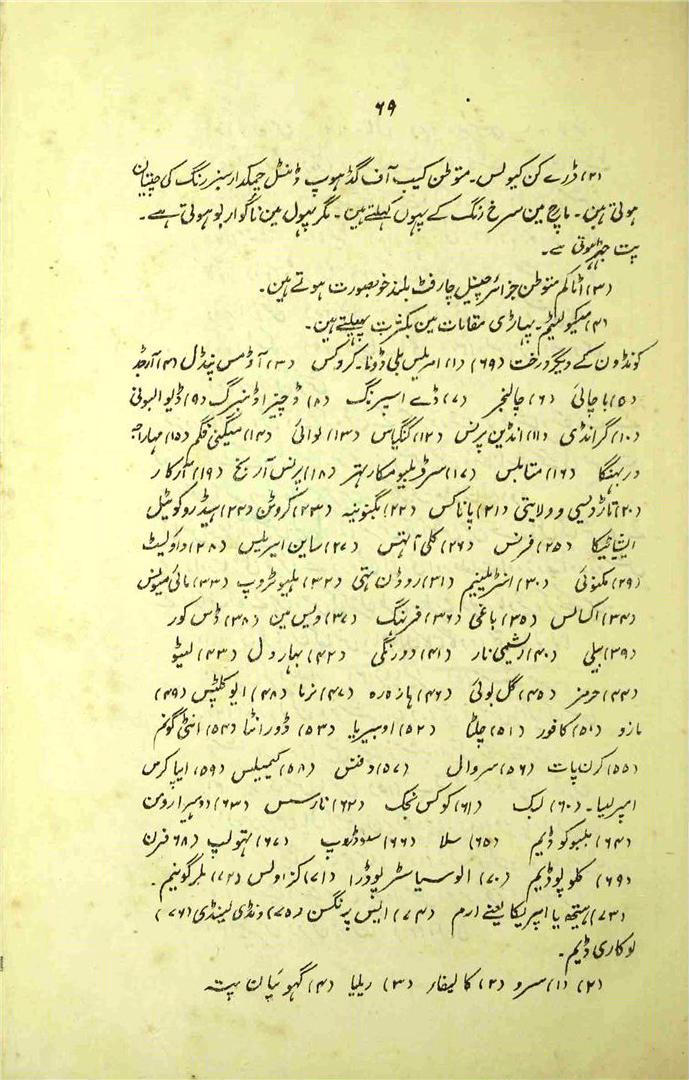 ۶۹
(۲) ڈرے کن کیولس۔ متوطن کیپ آف گڈ ہوپ ڈنٹل چمکدار سبز رنگ کی چتیان
ہوتی ہین۔ مارچ مین سرخ رنگ کے پہول کہلتے ہین۔ مگر پہول مین ناگوار بو ہوتی ہے۔
پت جہڑ ہوتی ہے۔
(۳) اٹاکم متوطن جزائر چینیل چار فٹ بلند خوبصورت ہوتے ہین۔
(۴) میکیولیٹم۔ پہاڑی مقامات مین بکثرت پہیلتے ہین۔
کونڈون کے دیگر درخت (۶۹) (۱) امریلس بلی ڈونا۔ کروکس (۳) آڈمس نیڈل (۴) آرڈ
(۵) باچائی (۶) چالنجر (۷) ڈے اسپرنگ (۸) ڈچیز اڈنبرگ (۹) ڈیو البونی
(۱۰) گرانڈی (۱۱) انڈین پرنس (۱۲) کنگیاس (۱۳) لوائی (۱۴) میگنی فکم (۱۵) مہاراجہ
دربہنگا (۱۶) متابلس (۱۷) سر ڈبلیو مکارتہر (۱۸) پرنس آر یخ (۱۹) آرکار
(۲۰) تاڑ دیسی و ولایتی (۲۱) پاناکس (۲۲) بگنونیہ (۲۳) کروٹن (۲۴) ہیڈروکوٹیل
ایشیاٹیکا (۲۵) فرنس (۲۶) کلی آنتہس (۲۷) ساین امیریلس (۲۸) واولیٹ
(۲۹) مکنوئی (۳۰) انٹرمیلینیم (۳۱) روڈن تہی (۳۲) ہلیوٹروپ (۳۳) مائی میولس
(۳۴) اکسالس (۳۵) باغی (۳۶) فرنگ (۳۷) ویس مین (۳۸) ڈس کور
(۳۹) بیلی (۴۰) ریشمی نار (۴۱) دورنگی (۴۲) بہار ول (۴۳) لیٹو
(۴۴) حرمز (۴۵) گل بوٹی (۴۶) ہازہ رہ (۴۷) نرما (۴۸) ایوکلپٹس (۴۹)
مازو (۵۰) کافور (۵۱) چلٹا (۵۲) اوبیریا (۵۳) ڈورانٹا (۵۴) انٹی گونم
(۵۵) کرن پات (۵۶) سروال (۵۷) دفنس (۵۸) کیمیلیس (۵۹) ایپاکرس
امپرلیا۔ (۶۰) لیک (۶۱) کوکس نجک (۶۲) نارسس (۶۳) دومیرا روس
(۶۴) بلبوکوڈیم (۶۵) سلا (۶۶) سنوڈروپ (۶۷) تہولپ (۶۸) فرن
(۶۹) کلوپوڈیم (۷۰) الوسیاسٹر پوڈرا (۷۱) کزاولس (۷۲) بلرگونیم۔
(۷۳) ہیتھہ یا امپریکا یعنے ارم (۷۴) ایس پرنگسن (۷۵) ونڈی لینڈی (۷۶)
لوکاری ڈیم۔
(۲) (۱) سرو (۲) کالیفار (۳) ریلیا (۴) گہوئیان پتہ